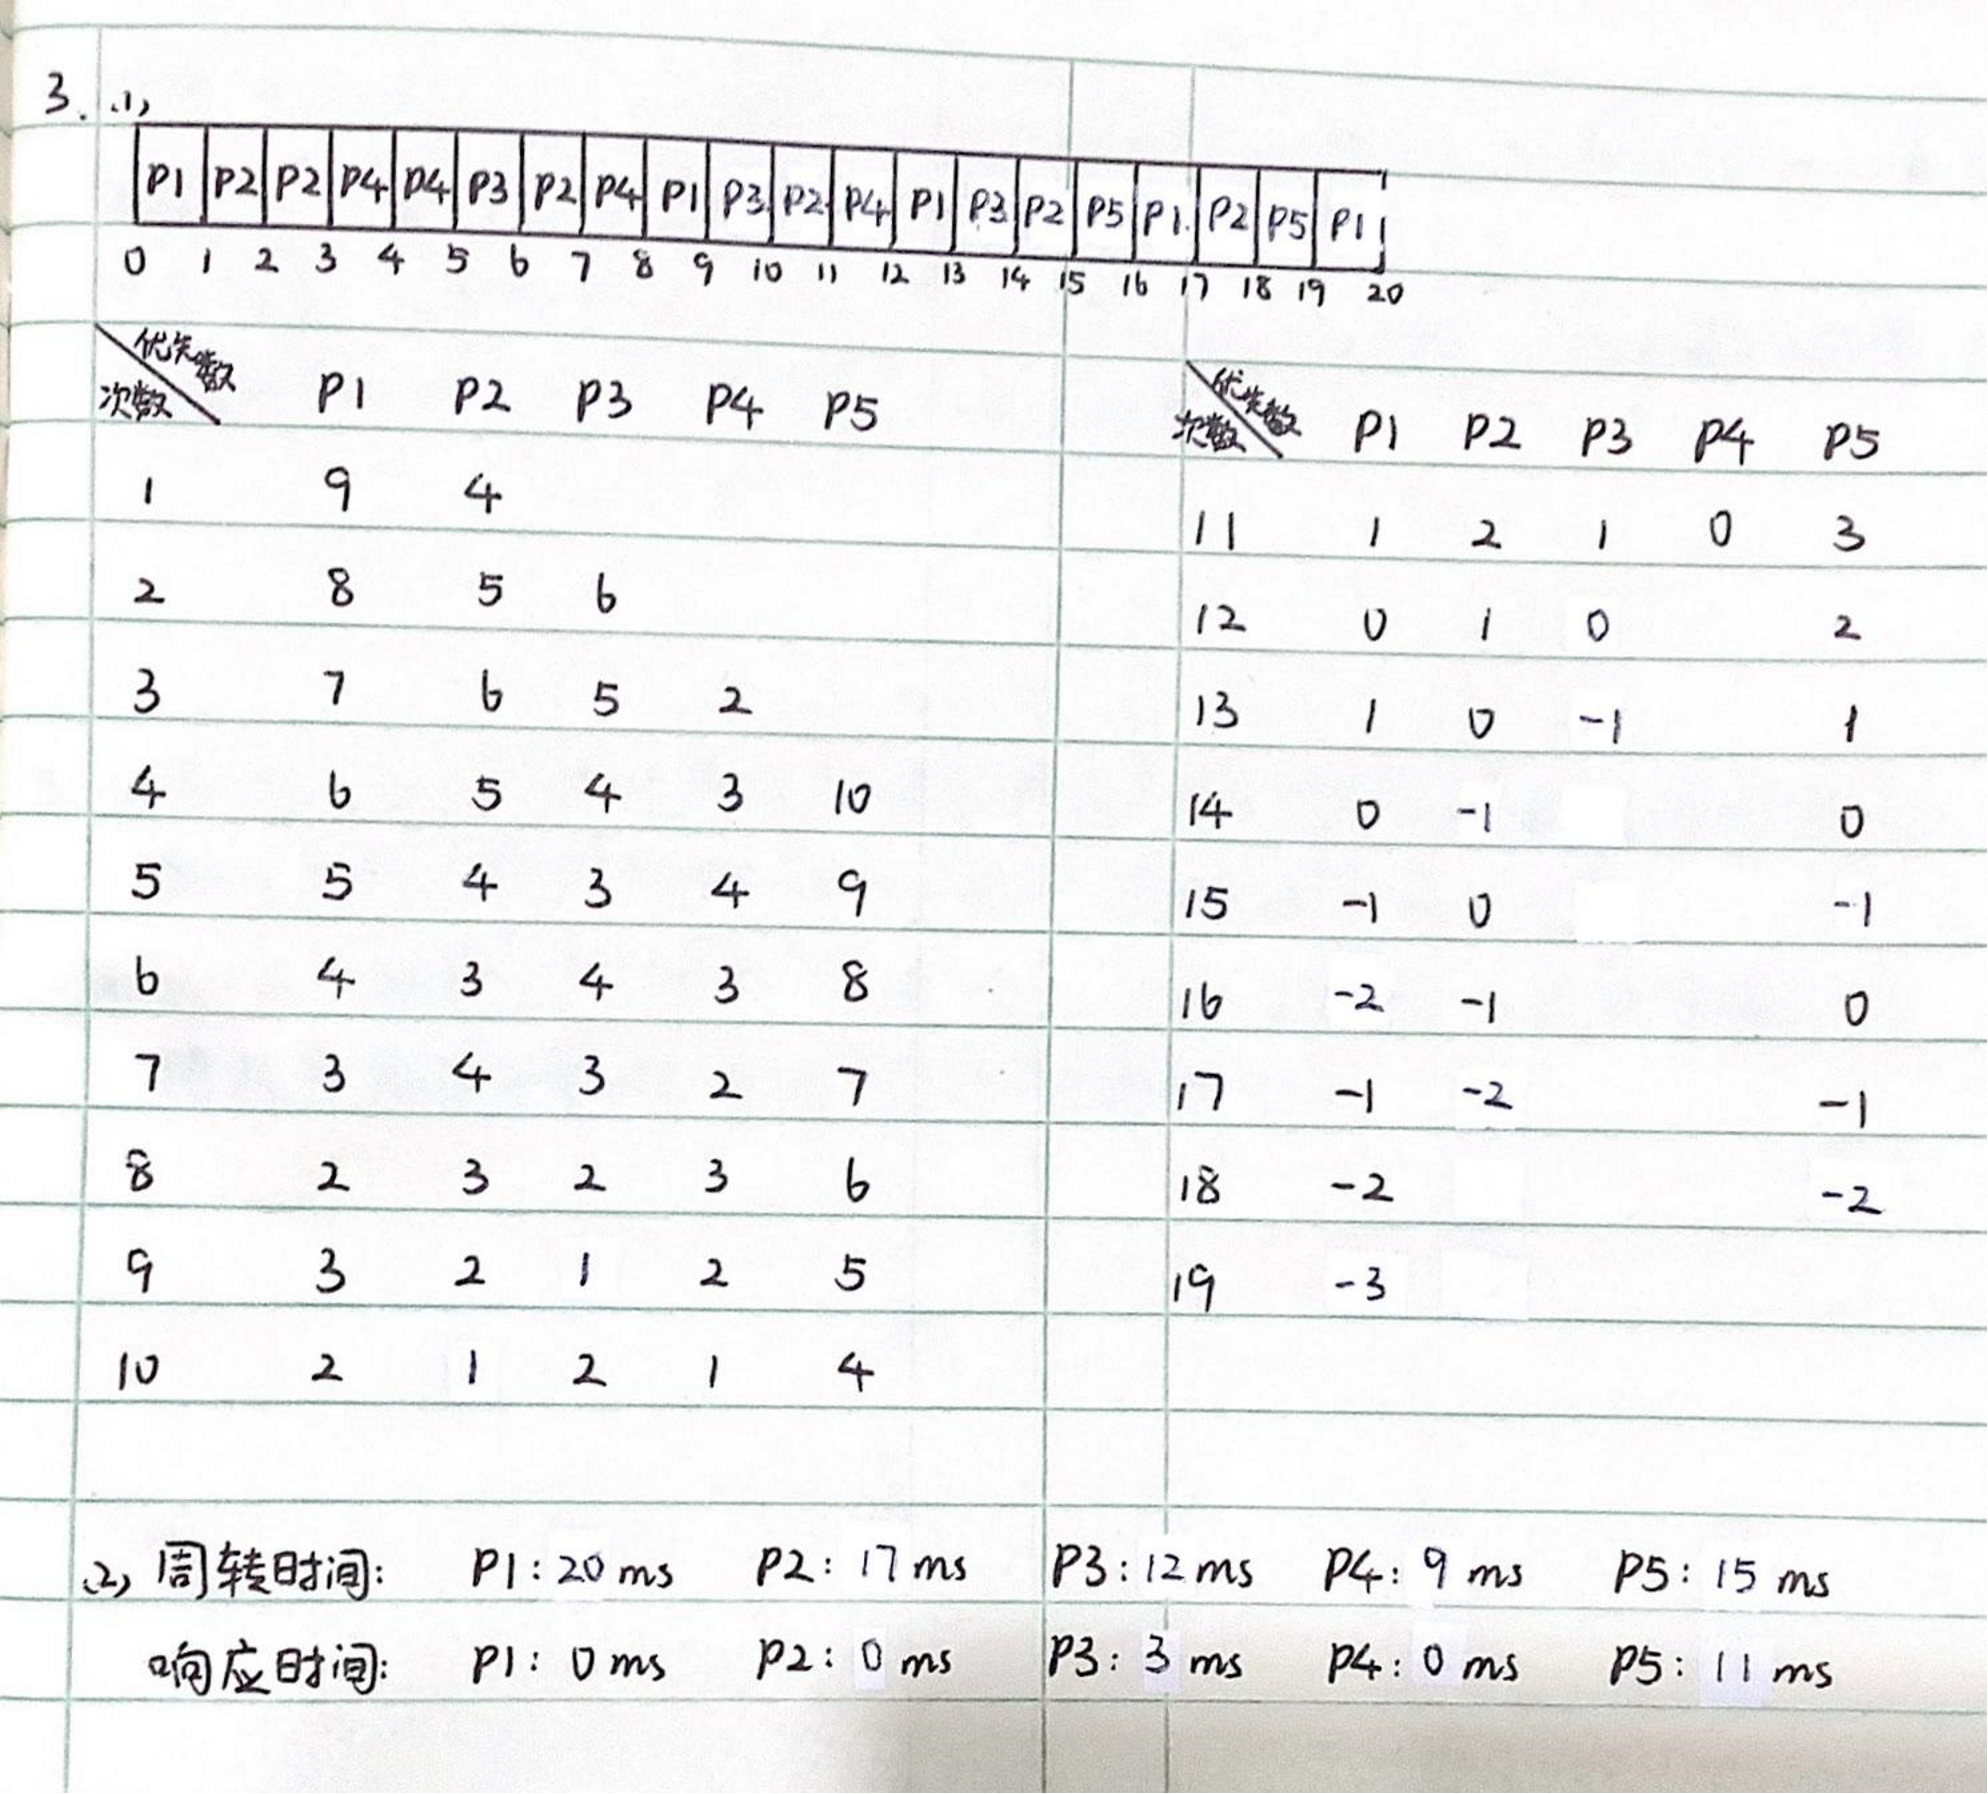 3. (1)
P1 P2 P2 P4 P4 P3 P2 P4 P1 P3 P2 P4 P1 P3 P2 P5 P1 P2 P5 P1
0 1 2 3 4 5 6 7 8 9 10 11 12 13 14 15 16 17 18 19 20
优先数
次数 P1 P2 P3 P4 P5
1 9 4
2 8 5 6
3 7 6 5 2
4 6 5 4 3 10
5 5 4 3 4 9
6 4 3 4 3 8
7 3 4 3 2 7
8 2 3 2 3 6
9 3 2 1 2 5
10 2 1 2 1 4
优先数
次数 P1 P2 P3 P4 P5
11 1 2 1 0 3
12 0 1 0 2
13 1 0 -1 1
14 0 -1 0
15 -1 0 -1
16 -2 -1 0
17 -1 -2 -1
18 -2 -2
19 -3
(2) 周转时间: P1: 20 ms P2: 17 ms P3: 12 ms P4: 9 ms P5: 15 ms
响应时间: P1: 0 ms P2: 0 ms P3: 3 ms P4: 0 ms P5: 11 ms